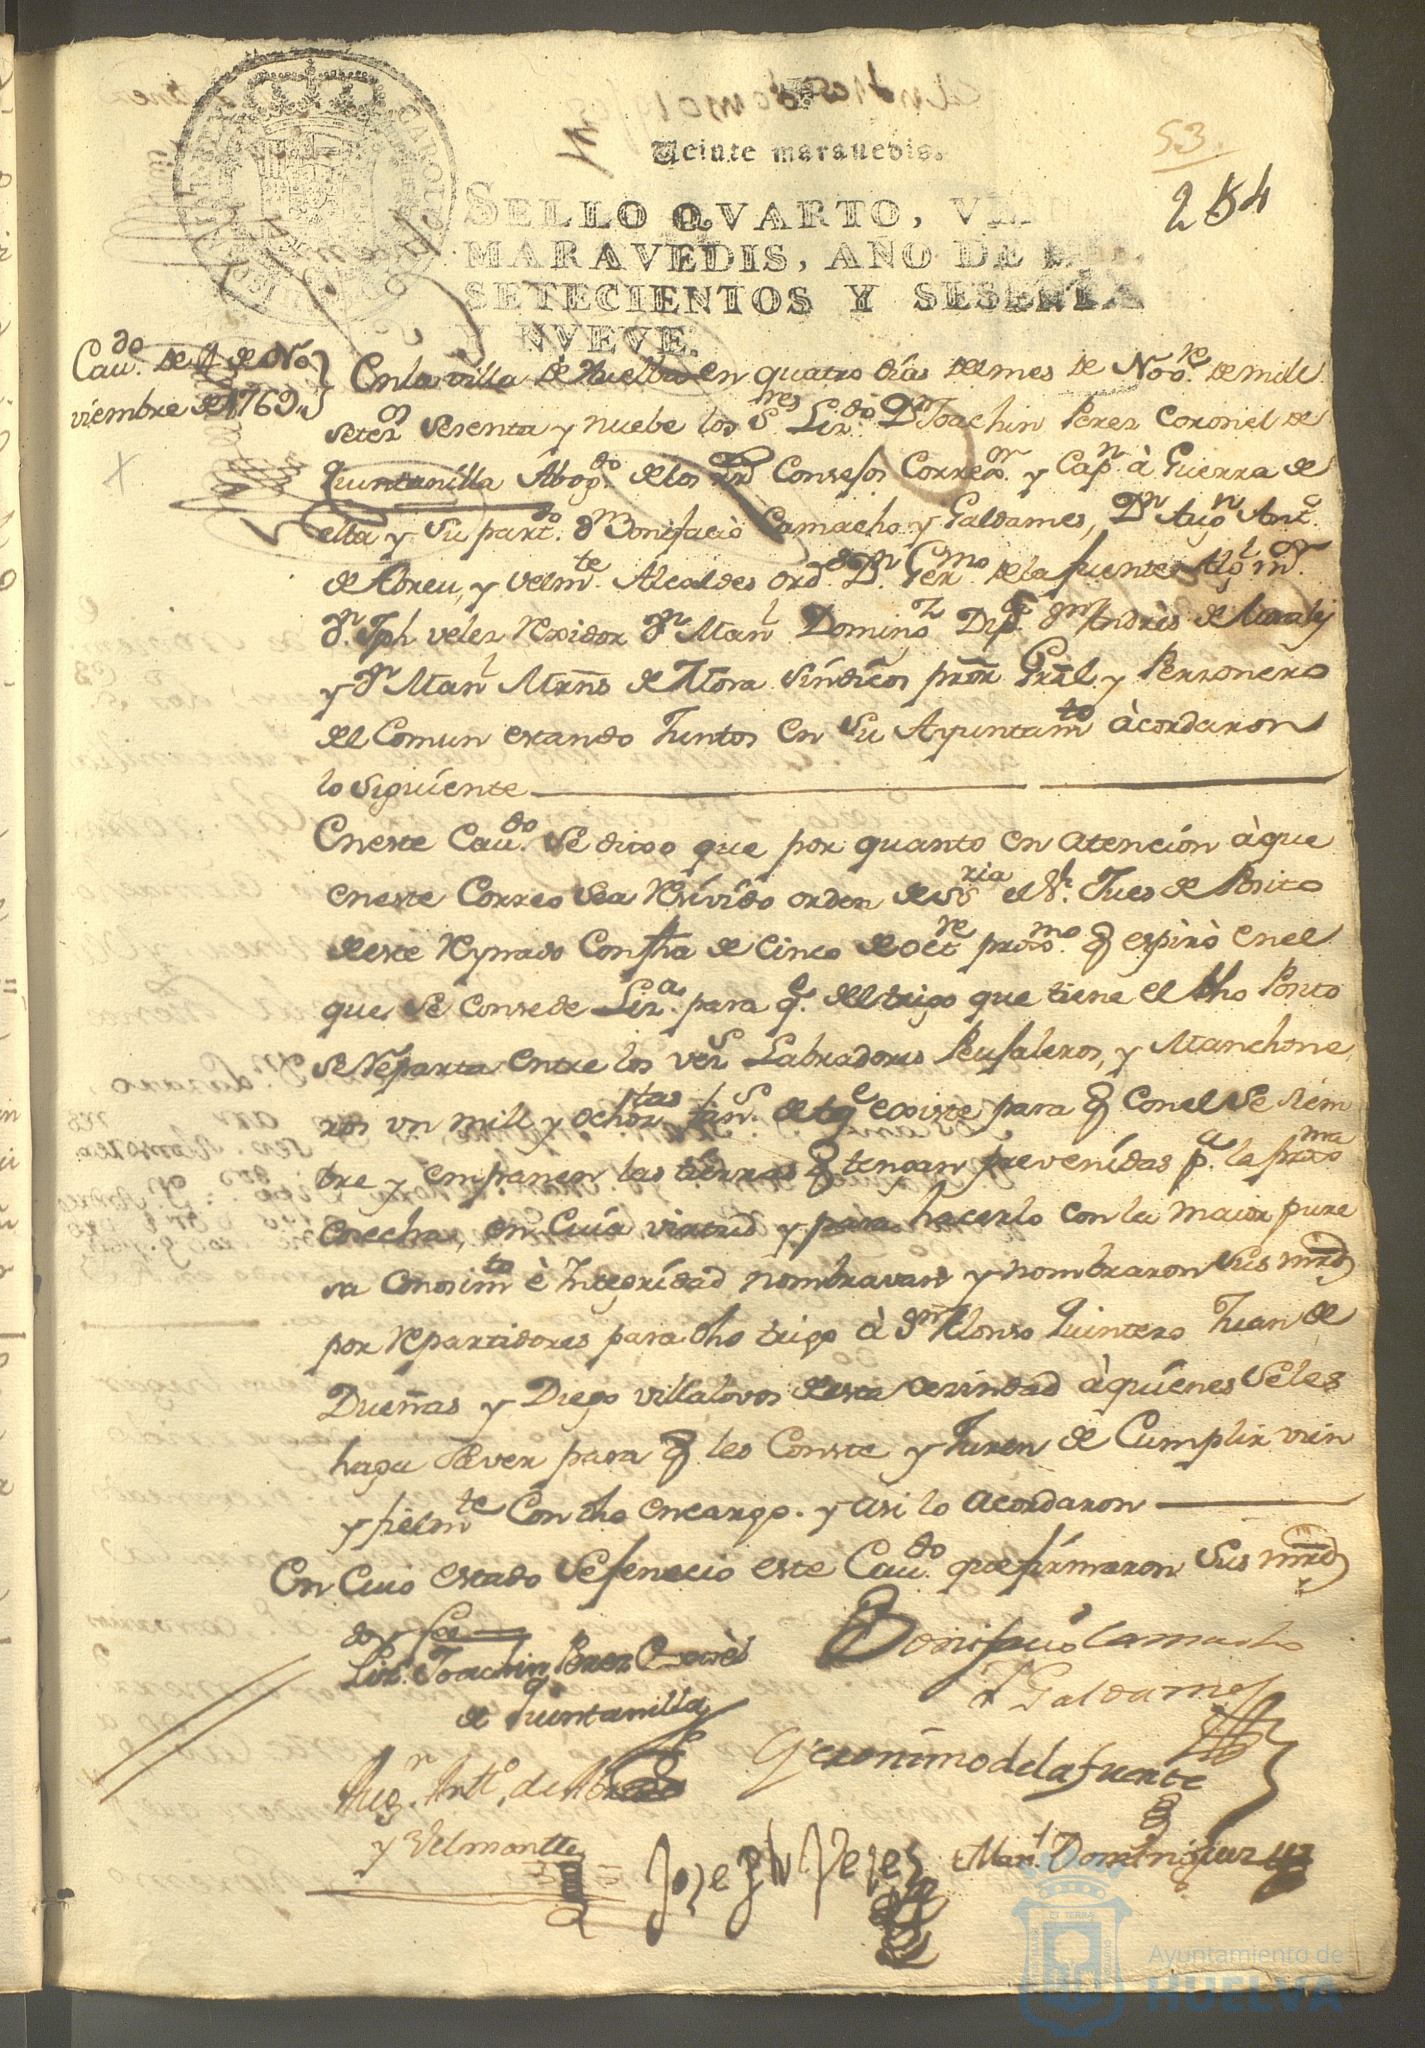 Veinte maravedis.
53
254
SELLO QVARTO, VE
MARAVEDIS, AÑO DE MIL
SETECIENTOS Y SESENTA
Y NVEVE.
Cavdo. de 4 de No
viembre de 1769
En la villa de Huelva en quatro dias del mes de Nove. de mill
setecs. sesenta y nuebe los Sres Licdo. Dn Joachin Perez Coronel de
Quintanilla Abogdo. de los RRs Consejos Corregor. y Capn. à Guerra de
ella y su partdo. Dn Bonifacio Camacho y Galdames, Dn Augn Anto.
de Abreu, y Velmte Alcaldes ords. Dn. Germo de la fuente Algl. mor.
Dn. Jph Velez Rexidor Dn Manl Domingz Dipdo. Dn Andrès de
y Dn Manl Mrns de Mora Sindicos Pror Gral y Personero
del Comun estando Juntos en su Ayuntamto àcordaron
lo siguiente
En este Cavdo. se dixo que por quanto en atencion à que
en este Correo sea resivido orden de Sria el Sr. Jues de Posito
de este Reynado con fha de cinco de octre proxmo. q espirò en el
que se consede Liza. para qe. del trigo que tiene el dho Posito
se reparta entre los vecs Labradores Pusaleros, y Manchone
ros un mill y ochostas fans. de tgo existe para q con el se siem
bre y empanen las tierras q tengan prevenidas pa. la proxma
Cosecha, en cuia virtud y para hacerlo con la maior pure
sa conosimto è Integridad nombravan y nombraron sus mrds
por repartidores para dho trigo à Dn Alonso Quintero Juan de
Dueñas y Diego villalovos de esta vezindad à quienes se les
haga saver para q les conste y Juren de Cumplir vien
y fielmte con dho encargo. y asi lo acordaron
En cuio estado se fenecio este Cavdo. que firmaron sus mrds
doy fee
Licdo. Joachin Perez Coronel
de Quintanilla
Bonifacio Camacho
y Galdames
Geronimo de la fuente
Augn. Antto. de Abreu
y Velmontte
Joseph Velez
Manl. Dominguez
Ayuntamiento de
HUELVA